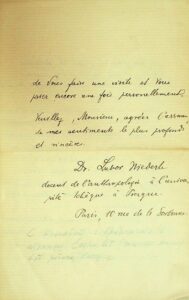 de Vous faire une visite et Vous
prier encore une fois personnellement.
Veuillez, Monsieur, agréer l'assur
de mes sentiments le plus profond
et sincères.
Dr. Lubor Niederle
docent de l'anthropologie à l'univer
sité tchèque à Prague
Paris, 10 rue de la Sorbonne